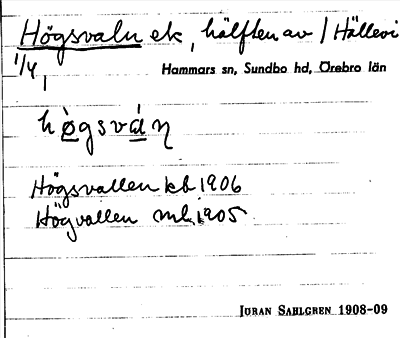 Högsvaln ek, hälften av / Hällevi
1/4,
Hammars sn, Sundbo hd, Örebro län
hògsván
Högsvallen kb 1906
Högvallen mb 1905
JÖRAN SAHLGREN 1908-09